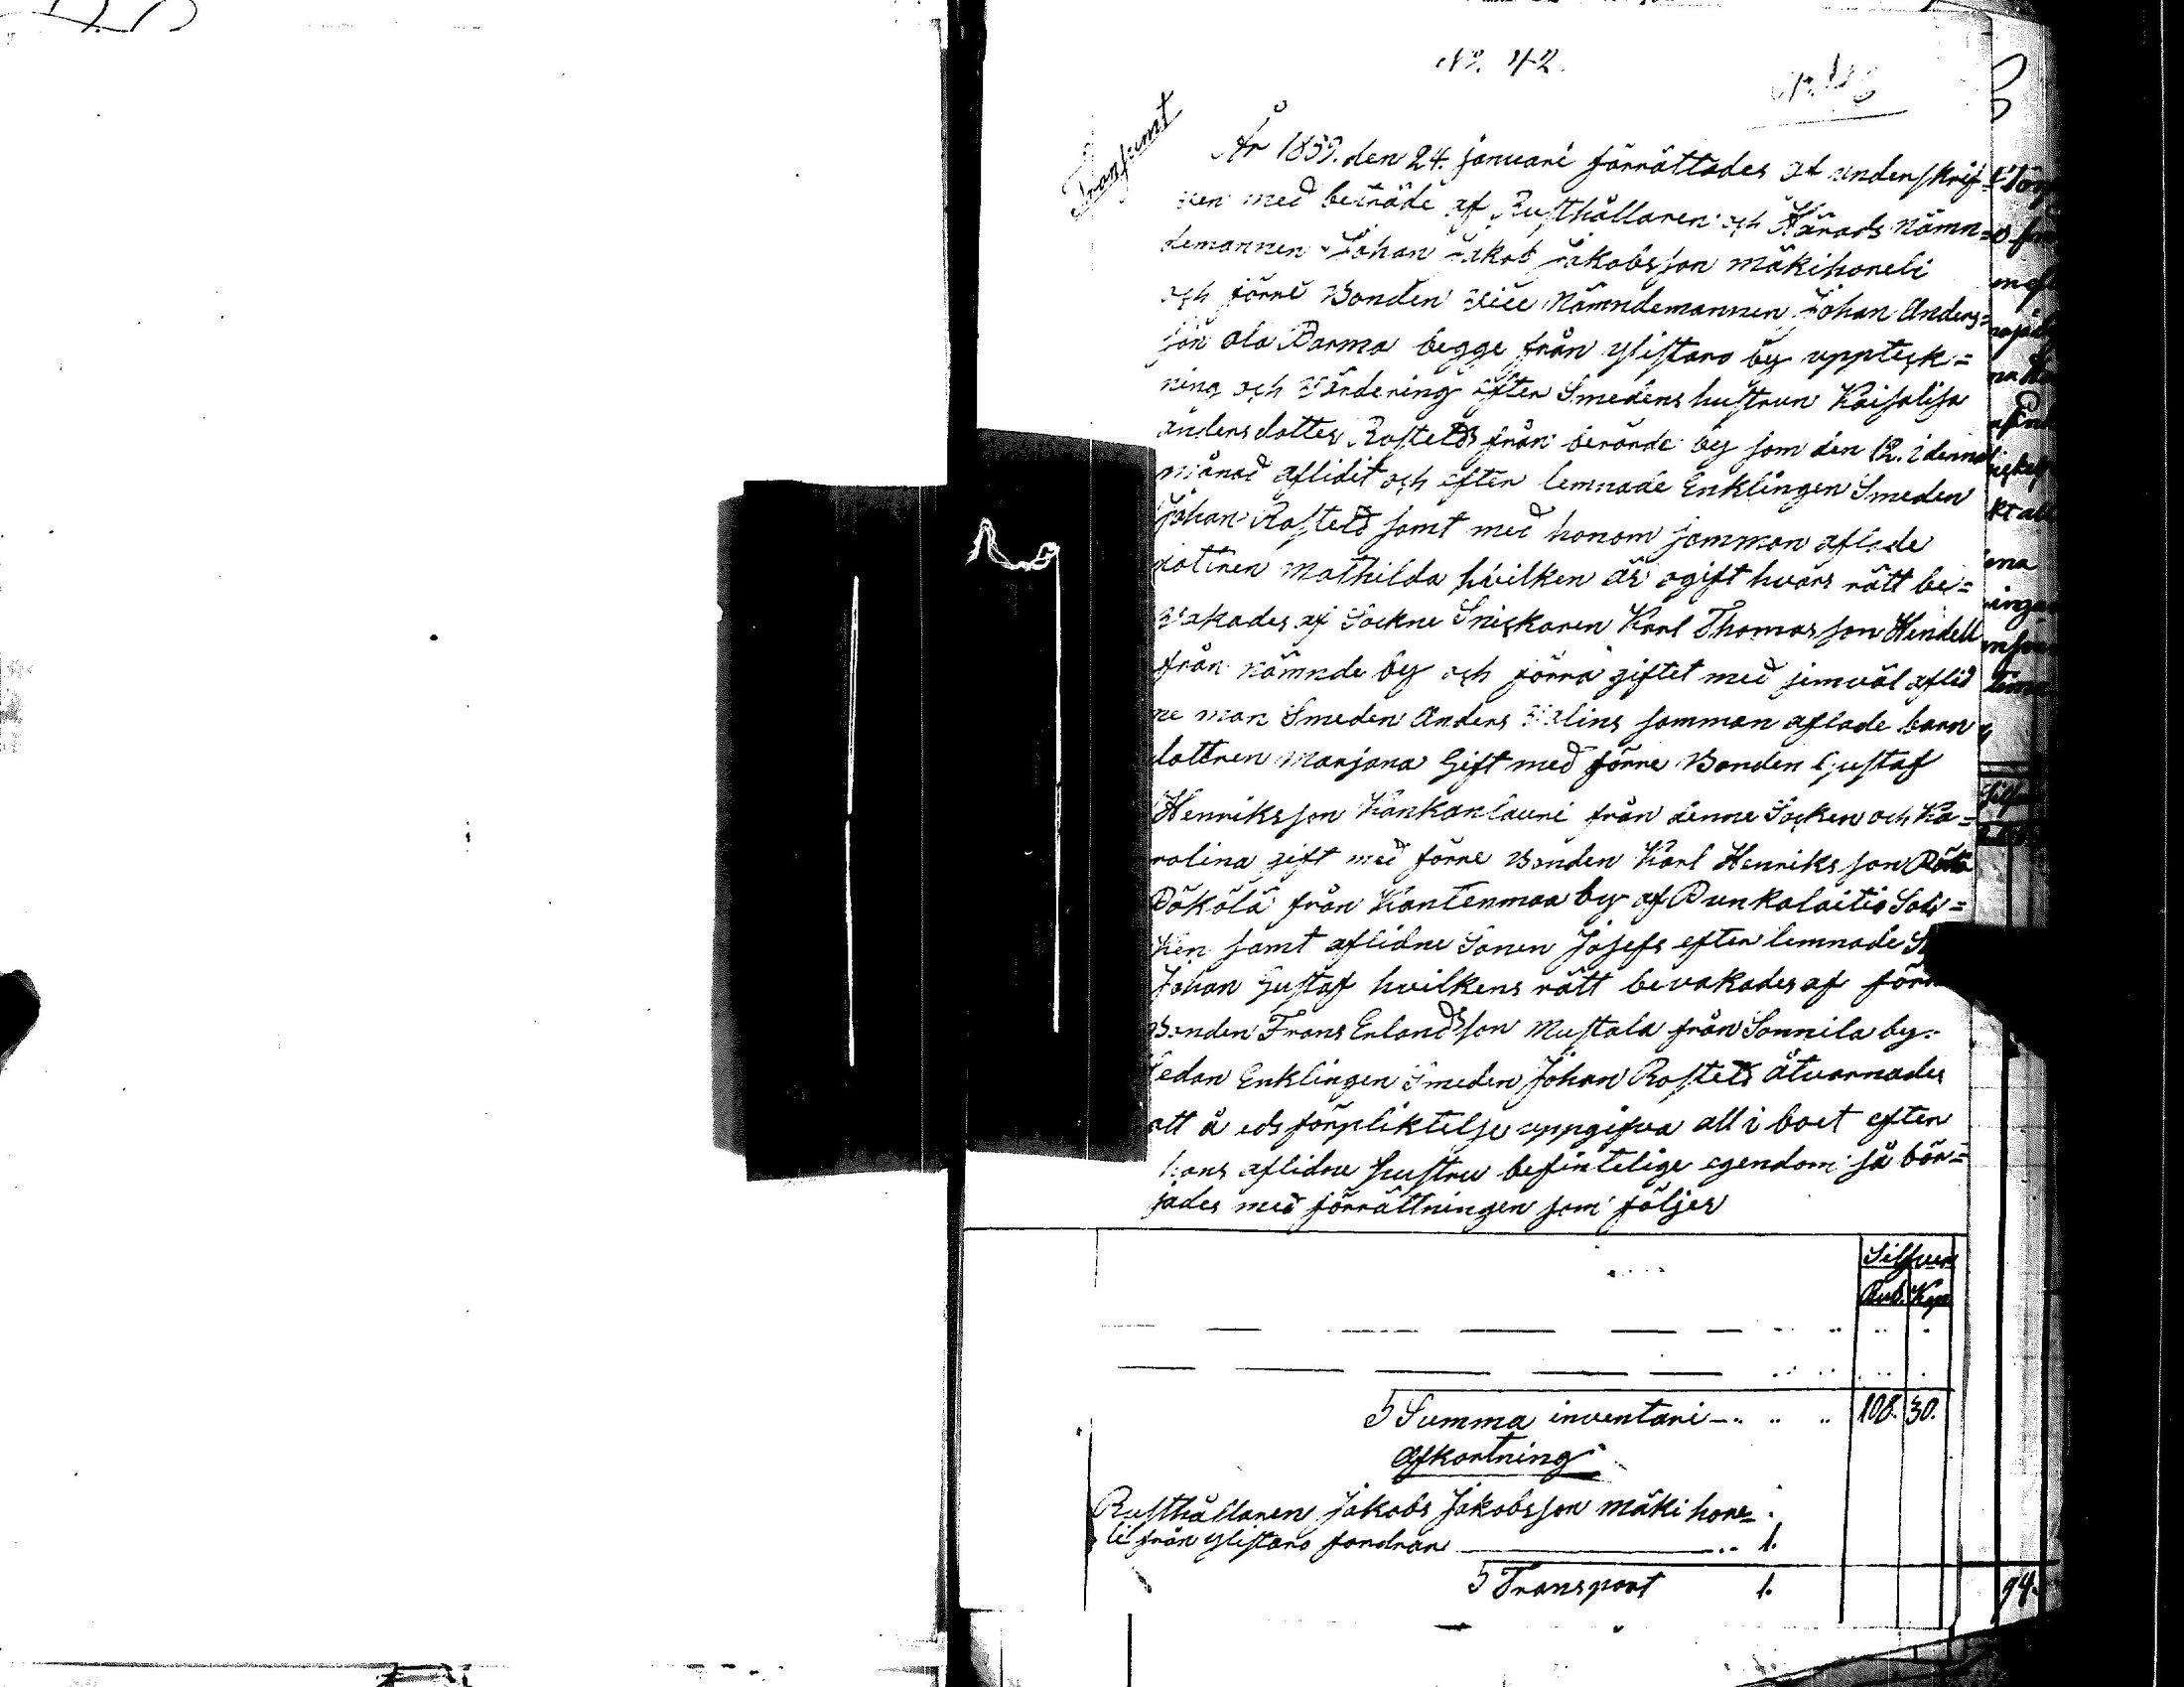 No. 42.
Transumt
År 1859. den 24. januari förrättades af underskrif=
ven med beträde af Rusthållaren och Härads nämn=
demannen Johan Jakob Jakobsson Mäkihoneli
och förre Bonden Vice Nämndemannen Johan Anders=
son ala Parma begge från Ylistaro by uppteck=
ning och Värdering efter Smedens hustrun Kaisalisa
andersdotter Rostedt från berörde by som den 12. i denne
månad aflidit och efter lemnade Enklingen Smeden
Johan Rostedt samt med honom samman aflade
dottren Mathilda hvilken är ogift hvars rätt be=
vakades af Sockne Snickaren Karl Thomasson Hendell
från nämnde by och förra giftet med jemväl aflid
ne man Smeden Anders Velins samman aflade barn
dottren Marjana Gift med förre Bonden Gustaf
Henriksson Kankanlauri från denne Socken och Ka=
rolina gift med förre Bonden Karl Henriksson
Pökölä från Kantenmaa by af Punkalaitio Sok=
ken samt aflidne Sonen Josefs efter lemnade
Johan Gustaf hvilkens rätt bevakades af förre
Bonden Frans Erlandsson Mustala från Sonnila by.
Sedan Enklingen Smeden Johan Rostedt åtvarnades
att å eds förpliktelse uppgifva all i boet efter
hans aflidne hustru befintelige egendom så bör=
jades med förrättningen som följer
Silfver
Rub. Kop.
S Summa inventari 108. 30.
Afkortning
Rusthållaren Jakobs Jakobsson Mäki hone=
li från Ylistaro fordran 1.
S Transport 1.
94.